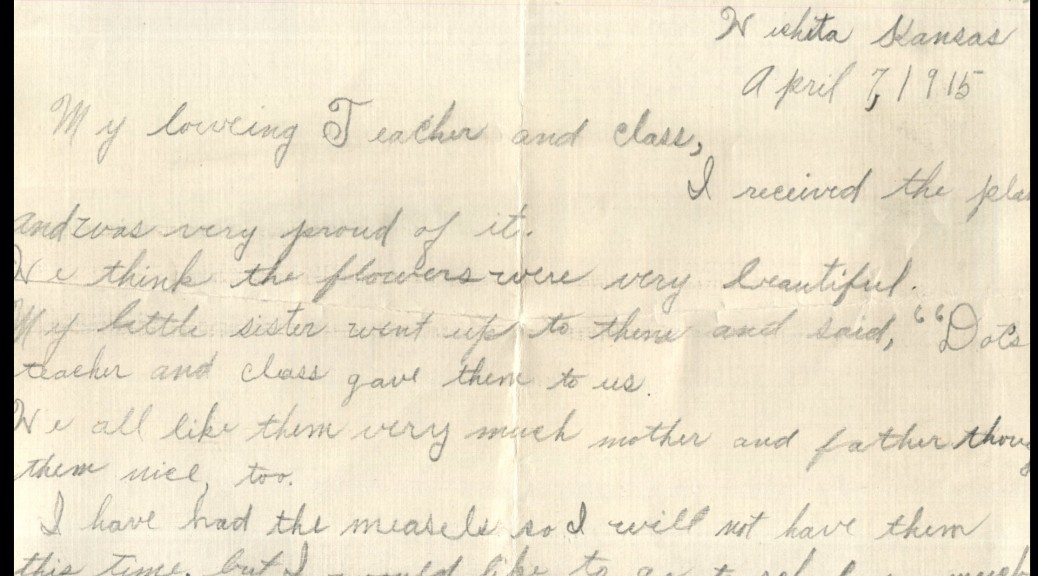 Wichita Kansas
April 7, 1915
My loveing Teacher and class,
I received the plan
and was very proud of it.
We think the flowers were very beautiful.
My little sister went up to them and said, "Dots
teacher and class gave them to us.
We all like them very much mother and father thoug
them nice, too.
I have had the measels so I will not have them
this time, but I would like to go to school very much